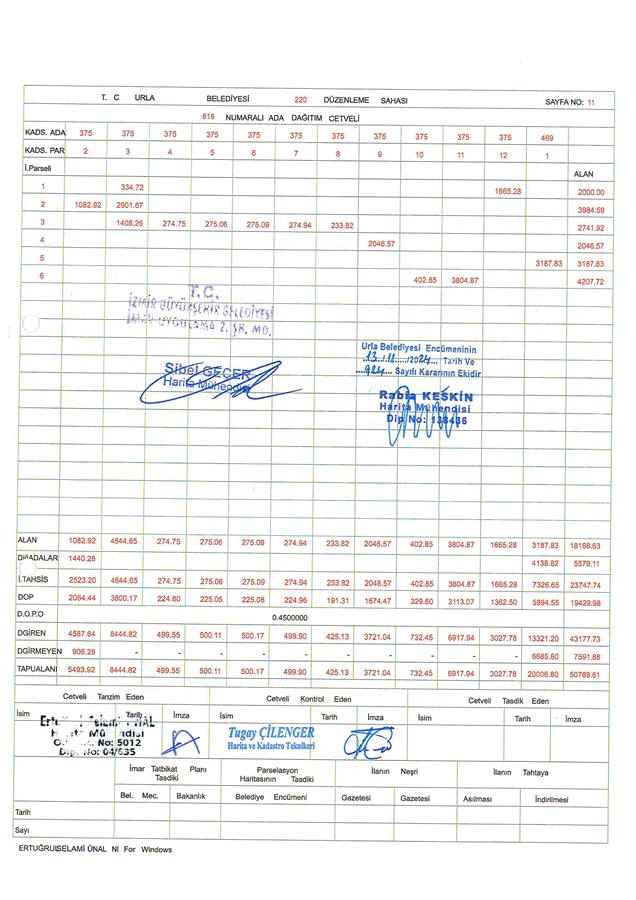 T. C URLA BELEDİYESİ 220 DÜZENLEME SAHASI SAYFA NO: 11
616 NUMARALI ADA DAĞITIM CETVELİ
KADS. ADA 375 375 375 375 375 375 375 375 375 375 375 469
KADS. PAR 2 3 4 5 6 7 8 9 10 11 12 1
İ.Parseli ALAN
1 334.72 1665.28 2000.00
2 1082.92 2901.67 3984.59
3 1408.26 274.75 275.06 275.09 274.94 233.82 2741.92
4 2046.57 2046.57
5 3187.83 3187.83
6 402.85 3804.87 4207.72
T.C.
İZMİR BÜYÜKŞEHİR BELEDİYESİ
İMAR UYGULAMA 2. ŞB. MD.
Sibel GECER
Harita Mühendisi
Urla Belediyesi Encümeninin
13/11/2024 Tarih Ve
924 Sayılı Kararının Ekidir
Rabia KESKİN
Harita Mühendisi
Dip No: 138436
ALAN 1082.92 4644.65 274.75 275.06 275.09 274.94 233.82 2046.57 402.85 3804.87 1665.28 3187.83 18168.63
ADALAR 1440.28 4138.82 5579.11
İ.TAHSİS 2523.20 4644.65 274.75 275.06 275.09 274.94 233.82 2046.57 402.85 3804.87 1665.28 7326.65 23747.74
DOP 2064.44 3800.17 224.80 225.05 225.08 224.96 191.31 1674.47 329.60 3113.07 1362.50 5994.55 19429.98
D.O.P.O 0.4500000
DGİREN 4587.64 8444.82 499.55 500.11 500.17 499.90 425.13 3721.04 732.45 6917.94 3027.78 13321.20 43177.73
DGİRMEYEN 906.28 - - - - - - - - - - 6685.60 7591.88
TAPUALANI 5493.92 8444.82 499.55 500.11 500.17 499.90 425.13 3721.04 732.45 6917.94 3027.78 20006.80 50769.61
Cetveli Tanzim Eden Cetveli Kontrol Eden Cetveli Tasdik Eden
İsim Tarih İmza İsim Tarih İmza İsim Tarih İmza
No: 5012
Dip. No: 04/635
Tugay ÇİLENGER
Harita ve Kadastro Teknikeri
İmar Tatbikat Planı Tasdiki Parselasyon Haritasının Tasdiki İlanın Neşri İlanın Tahtaya
Bel. Mec. Bakanlık Belediye Encümeni Gazetesi Gazetesi Asılması İndirilmesi
Tarih
Sayı
ERTUĞRULSELAMİ ÜNAL NI For Windows